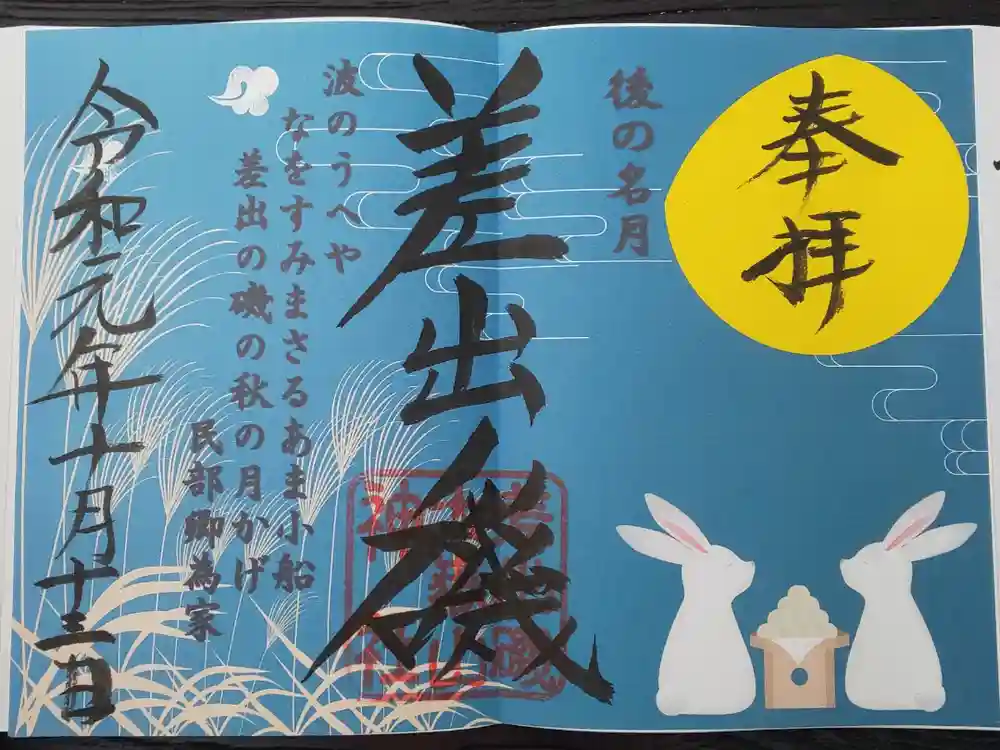 奉拝
後の名月
差出磯
波のうへや
なをすみまさるあま小船
差出の磯の秋の月かげ
民部卿為家
令和元年十月十三日